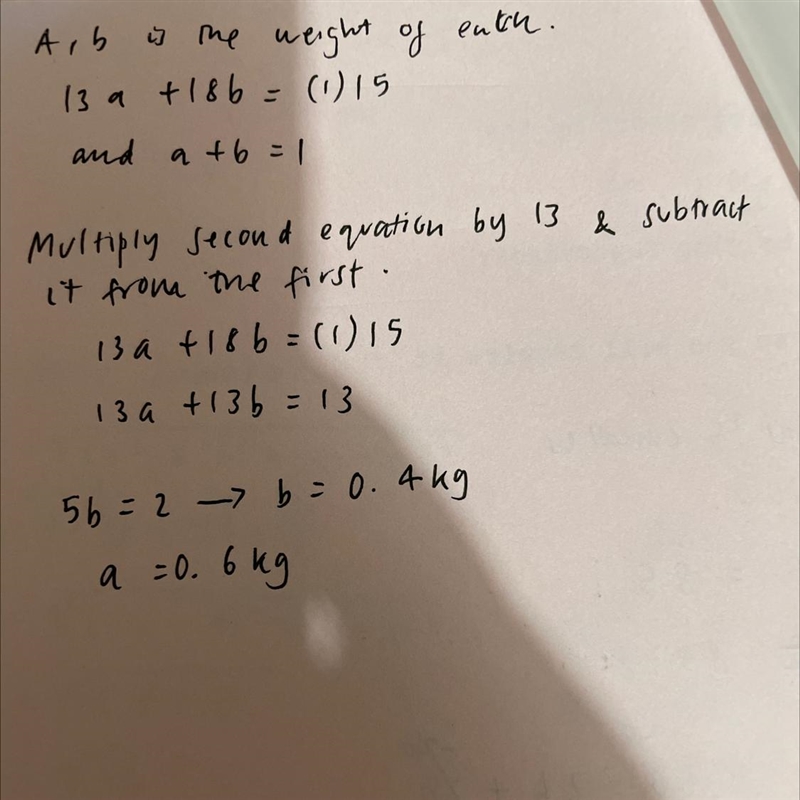 A, b is the weight of each.
13a + 18b = (1)15
and a + b = 1
Multiply second equation by 13 & subtract
it from the first.
13a + 18b = (1)15
13a + 13b = 13
5b = 2 → b = 0.4kg
a = 0.6kg